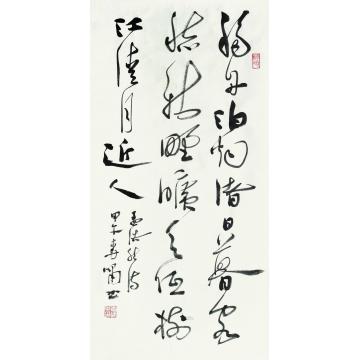 移舟泊烟渚日暮客
愁新野曠天低樹
江清月近人
孟浩然詩
甲午春嘯書